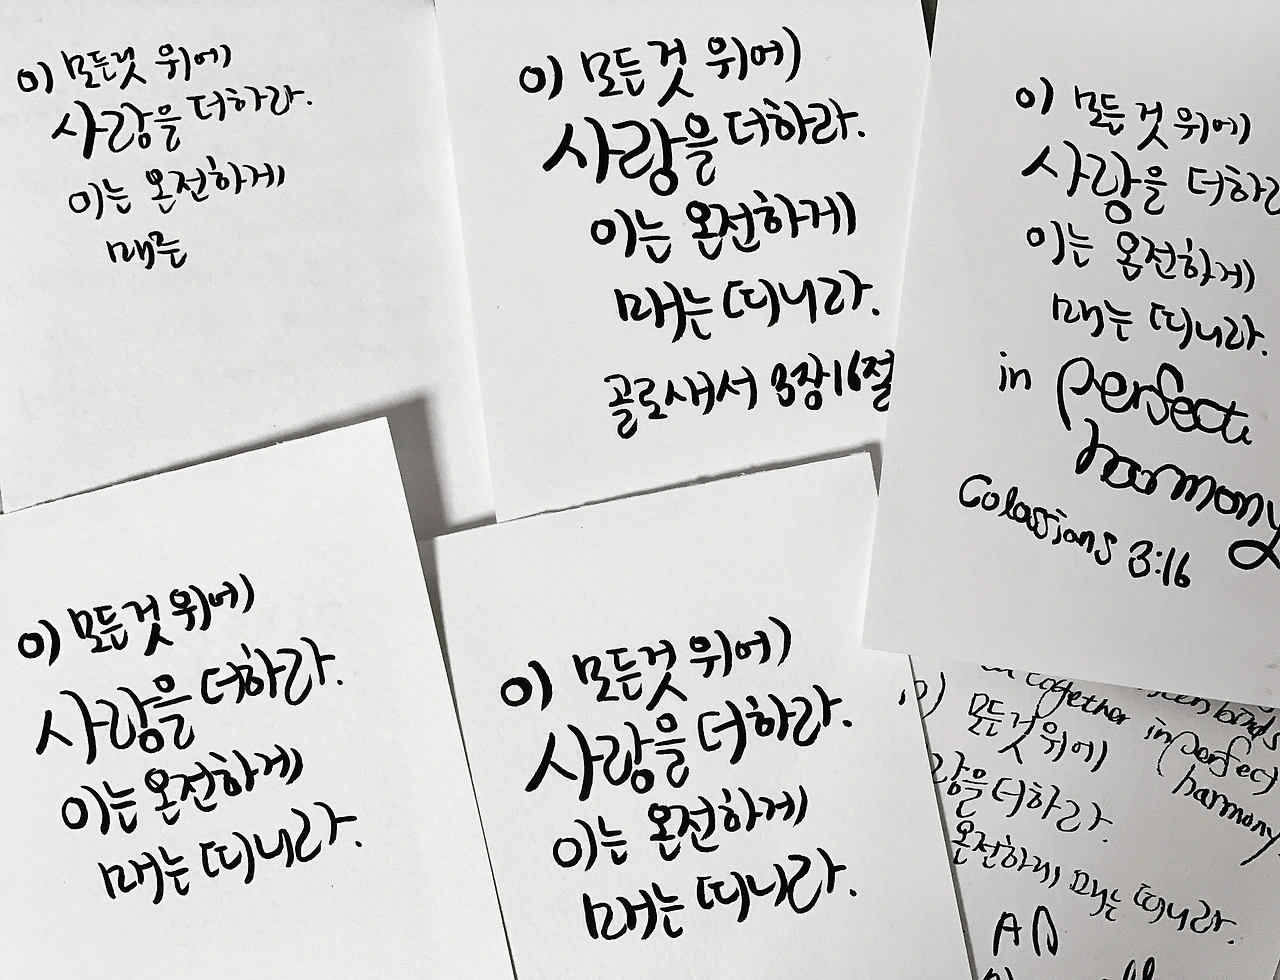 이 모든것 위에
사랑을 더하라.
이는 온전하게
매는
이 모든것 위에
사랑을 더하라.
이는 온전하게
매는 띠니라.
골로새서 3장16절
이 모든것 위에
사랑을 더하라
이는 온전하게
매는 띠니라.
in perfect
harmony
Colossians 3:16
이 모든것 위에
사랑을 더하라.
이는 온전하게
매는 띠니라.
이 모든것 위에
사랑을 더하라.
이는 온전하게
매는 띠니라.
together in perfect
harmony.
모든것 위에
랑을 더하라.
온전하게 매는 띠니라.